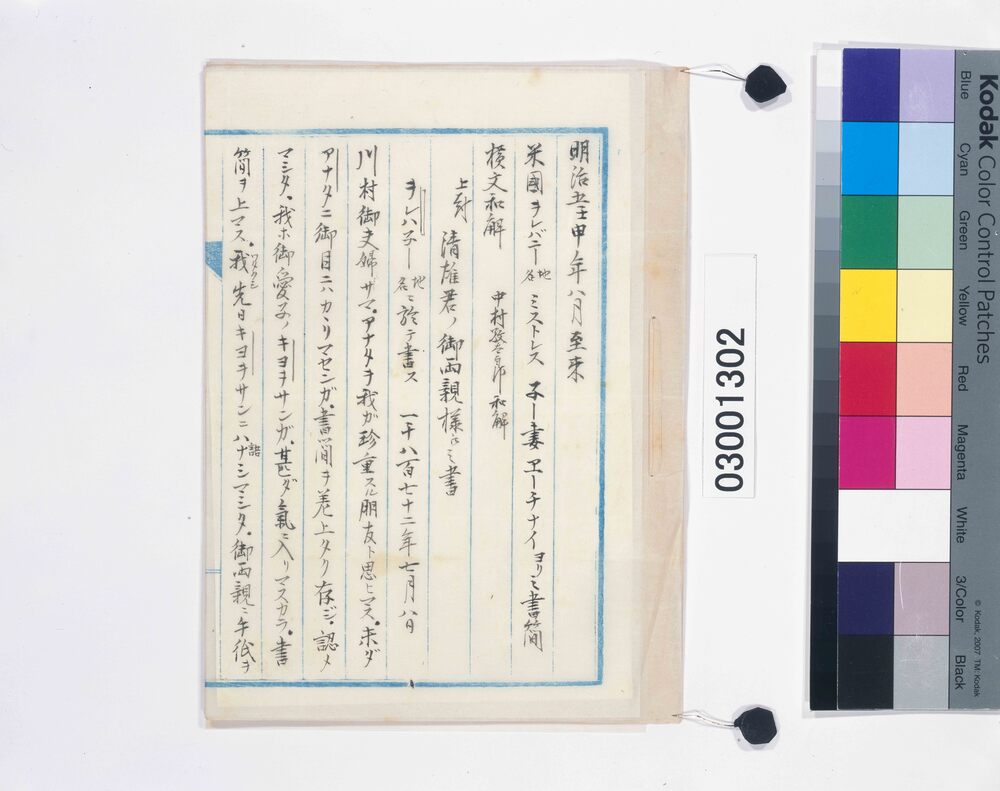 明治壬申年八月至来
米國ヲレバニー地名 ミストレス 子ー妻 エーチナイ ヨリノ書簡
横文和解 中村 和解
上封 清雄君ノ御両親様ヘノ書
ヲレバ子ー地名ニ於テ書ス 一千八百七十二年七月八日
川村御夫婦サマ。アナタヲ我ガ珍重スル朋友ト思ヒマス。未ダ
アナタニ御目ニハカヽリマセンガ。書簡ヲ差上タク存ジ。認メ
マシタ。我ホ御愛子ノキヨヲサンガ。甚ダ氣ニ入リマスカラ。書
簡ヲ上マス。我ワタクシ先日キヨヲサンニハナ話シマシタ。御両親ニ手紙ヲ
03001302
Kodak Color Control Patches
Blue Cyan Green Yellow Red Magenta White 3/Color Black
© Kodak, 2007 TM: Kodak